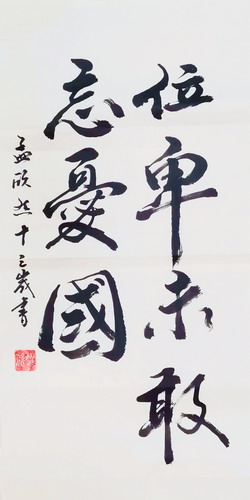 位卑未敢
忘憂國
孟欣然十三歲書